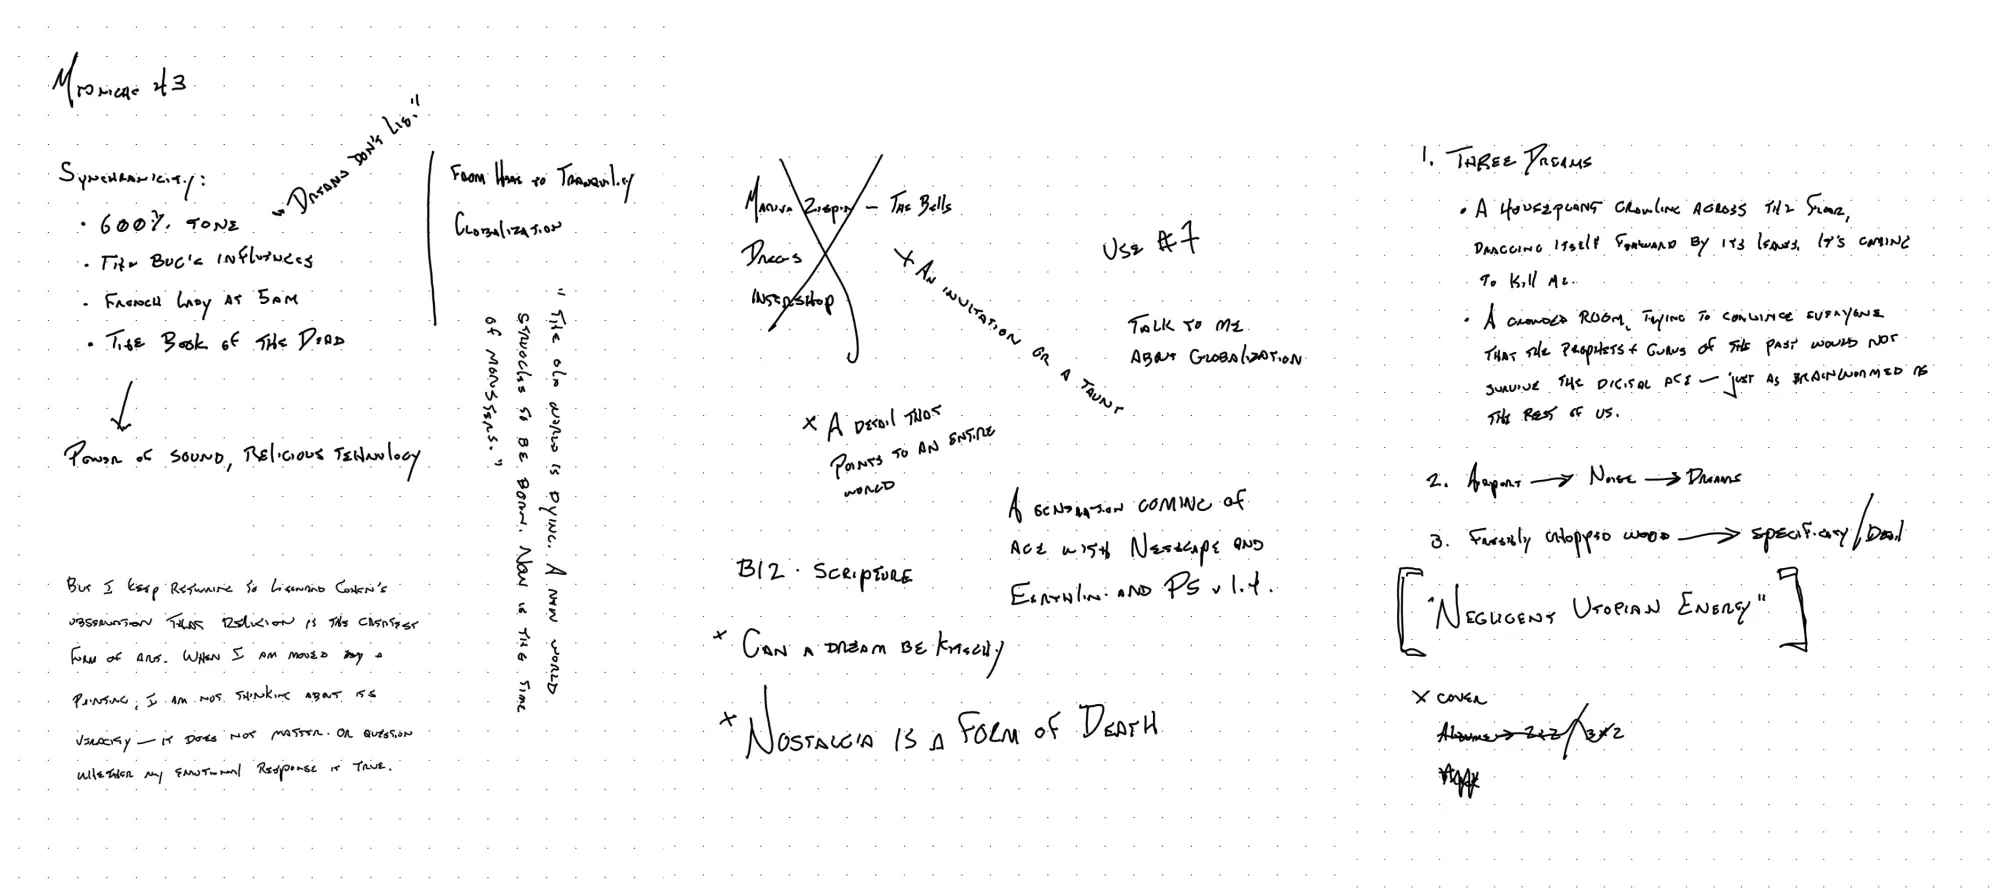 Midnight #3
Synchronicity:
• 600% tone
• The Bug's influences
• French lady at 5am
• The Book of the Dead
"Dreams don't lie."
From to Tranquility
Globalization
Power of sound, Religious technology
"The old world is dying. A new world
struggles to be born. Now is the time
of monsters."
But I keep returning to Leonard Cohen's
observation that religion is the greatest
form of art. When I am moved by a
painting, I am not thinking about its
veracity — it does not matter. Or question
whether my emotional response is true.
– The Bells
× An invitation or a taunt
Use #7
Talk to me
about Globalization
× A detail that
points to an entire
world
A generation coming of
age with Netscape and
and PS v 1.4.
B12 · Scripture
× Can a dream be kitschy
× Nostalgia is a Form of Death
1. Three Dreams
• A houseplant crawling across the floor,
dragging itself forward by its leaves. It's coming
to kill me.
• A crowded room, trying to convince everyone
that the prophets + gurus of the past would not
survive the digital age — just as brainwormed as
the rest of us.
2. Airport → Noise → Dreams
3. Freshly chopped wood → specificity/
["Negligent Utopian Energy"]
× cover